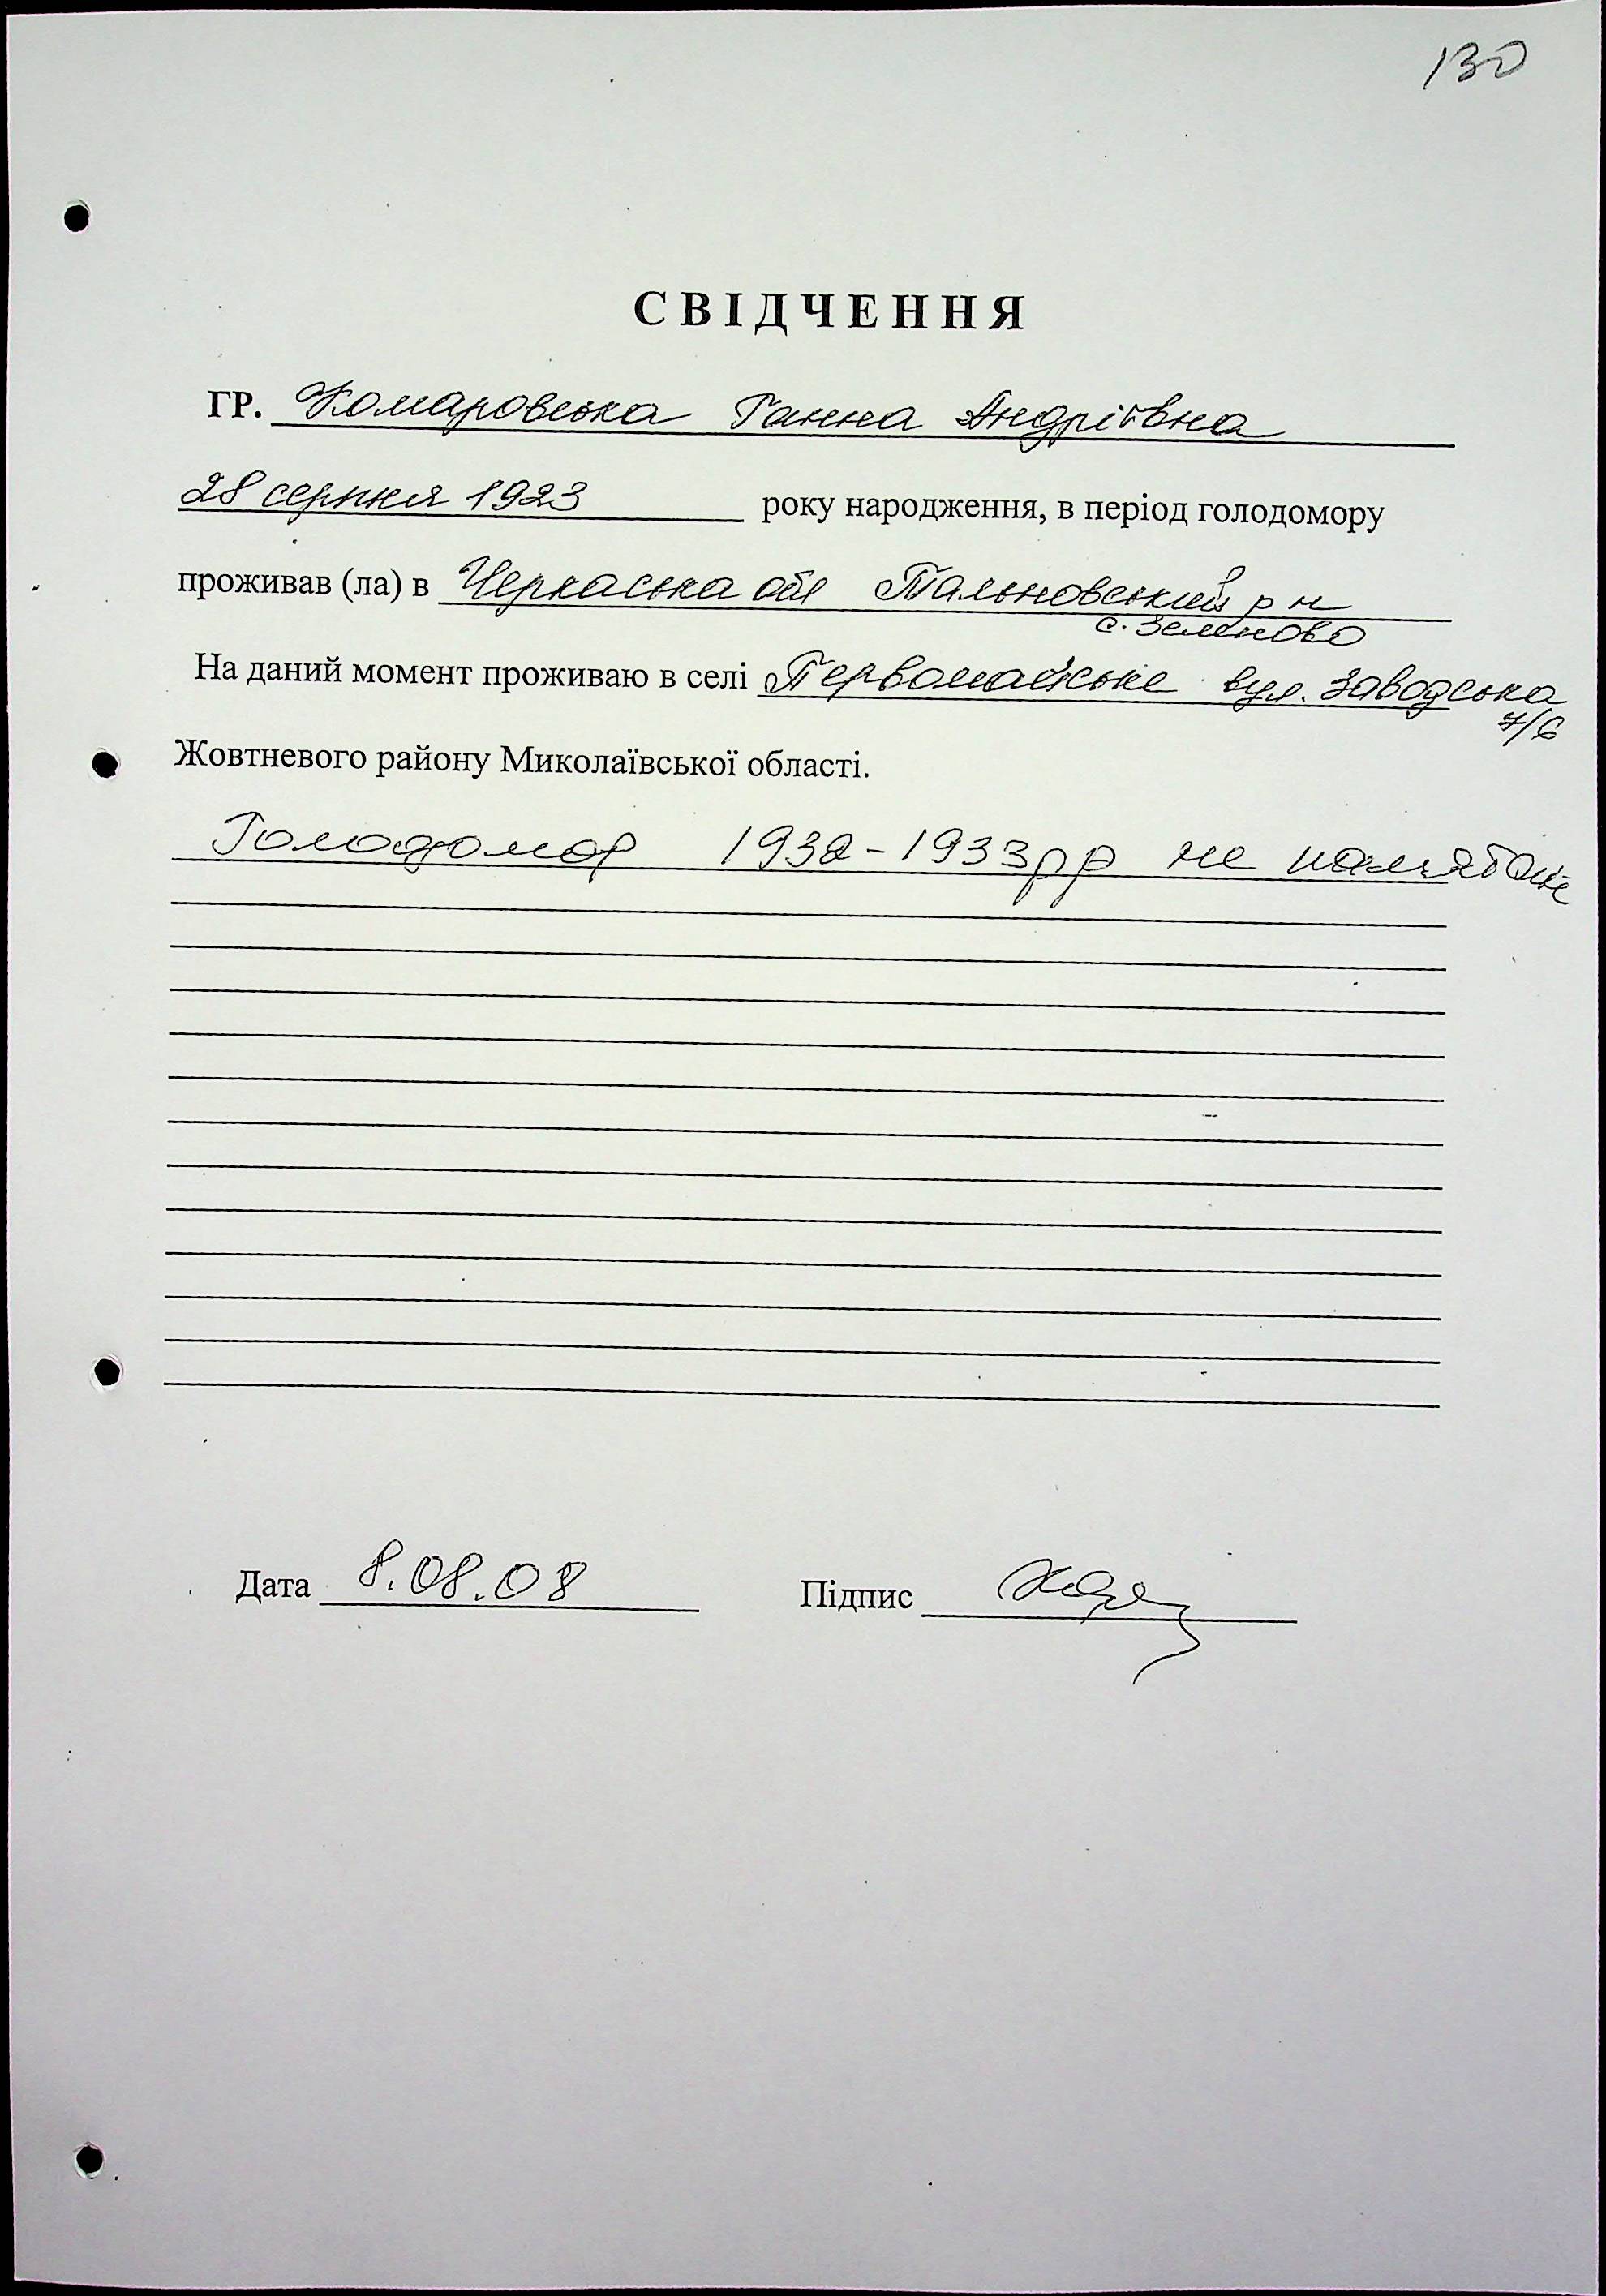 130
СВІДЧЕННЯ
ГР. Комаровська Ганна Андріївна
28 серпня 1923 року народження, в період голодомору
проживав (ла) в Черкаська обл Тальновський р н
с. Зеленово
На даний момент проживаю в селі Первомайське вул. Заводська
7/6
Жовтневого району Миколаївської області.
Голодомор 1932-1933рр не
Дата 8.08.08 Підпис